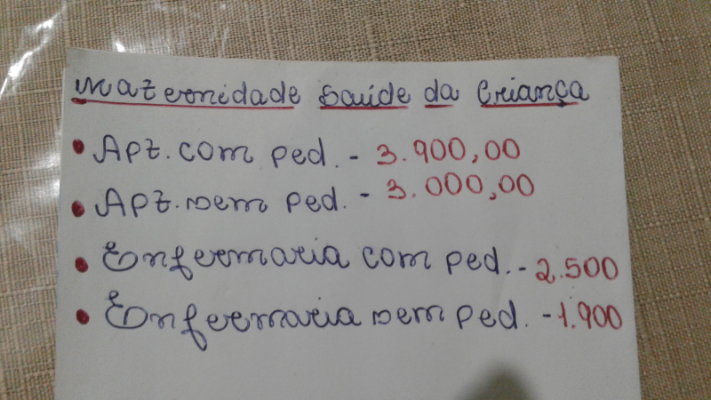 Maternidade Saúde da Criança
• Apt. com ped. - 3.900,00
• Apt. sem ped. - 3.000,00
• Enfermaria com ped. - 2.500
• Enfermaria sem ped. - 1.900